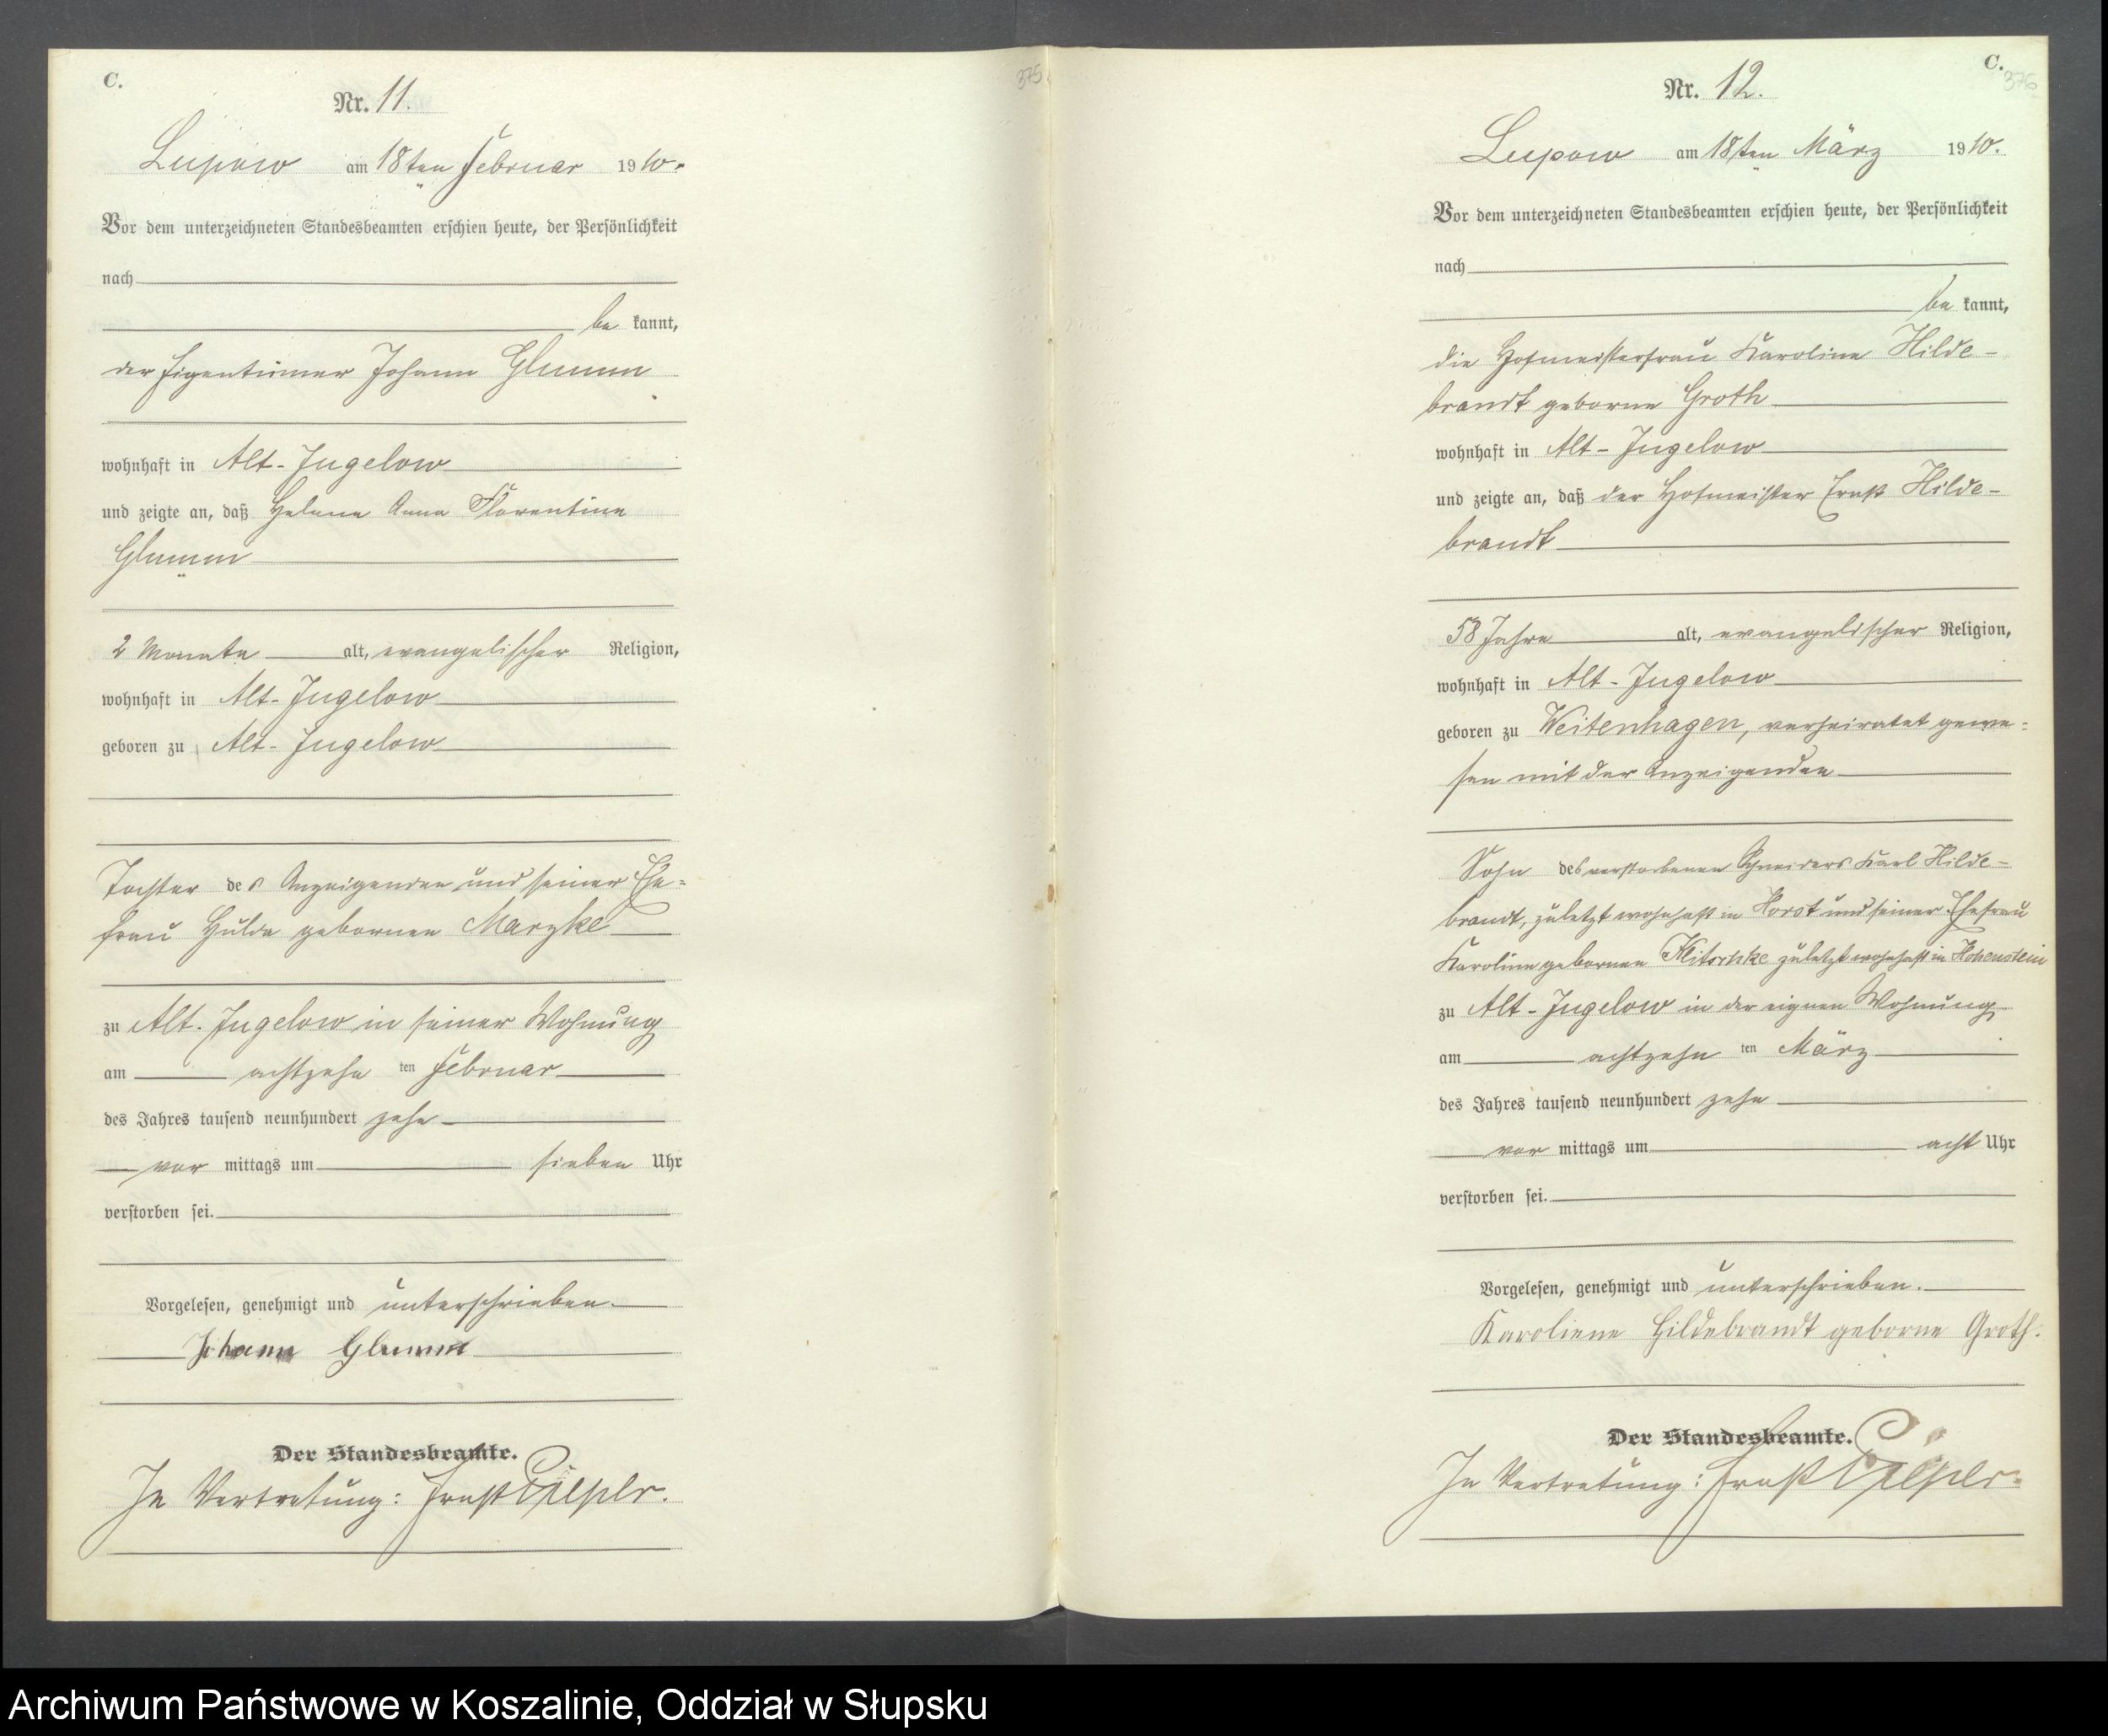 C.
375
Nr. 11.
Lupow am 18ten Februar 1910.
Vor dem unterzeichneten Standesbeamten erschien heute, der Persönlichkeit
nach
be kannt,
der Eigentümer Johann Glumm
wohnhaft in Alt-Jugelow
und zeigte an, daß Helene Anna Florentine
Glumm
2 Monate alt, evangelischer Religion,
wohnhaft in Alt-Jugelow
geboren zu Alt-Jugelow
Tochter des Anzeigenden und seiner Ehe=
frau Hulda gebornen Marzke
zu Alt-Jugelow in seiner Wohnung
am achtzehn ten Februar
des Jahres tausend neunhundert zehn
vor mittags um sieben Uhr
verstorben sei.
Vorgelesen, genehmigt und unterschrieben.
Johann Glumm
Der Standesbeamte.
In Vertretung: Ernst
C.
376
Nr. 12.
Lupow am 18ten März 1910.
Vor dem unterzeichneten Standesbeamten erschien heute, der Persönlichkeit
nach
be kannt,
die Hofmeisterfrau Karoline Hilde-
brandt geborne Groth
wohnhaft in Alt-Jugelow
und zeigte an, daß der Hofmeister Ernst Hilde-
brandt
58 Jahre alt, evangelischer Religion,
wohnhaft in Alt-Jugelow
geboren zu Weitenhagen, verheiratet gewe=
sen mit der Anzeigenden
Sohn des verstorbenen Schneiders Karl Hilde-
brandt, zuletzt wohnhaft in Horst und seiner Ehefrau
Karoline gebornen Klitschke zuletzt wohnhaft in Hohenstein
zu Alt-Jugelow in der eignen Wohnung
am achtzehn ten März
des Jahres tausend neunhundert zehn
vor mittags um acht Uhr
verstorben sei.
Vorgelesen, genehmigt und unterschrieben.
Karoliene Hildebrandt geborne Groth.
Der Standesbeamte.
In Vertretung: Ernst
Archiwum Państwowe w Koszalinie, Oddział w Słupsku